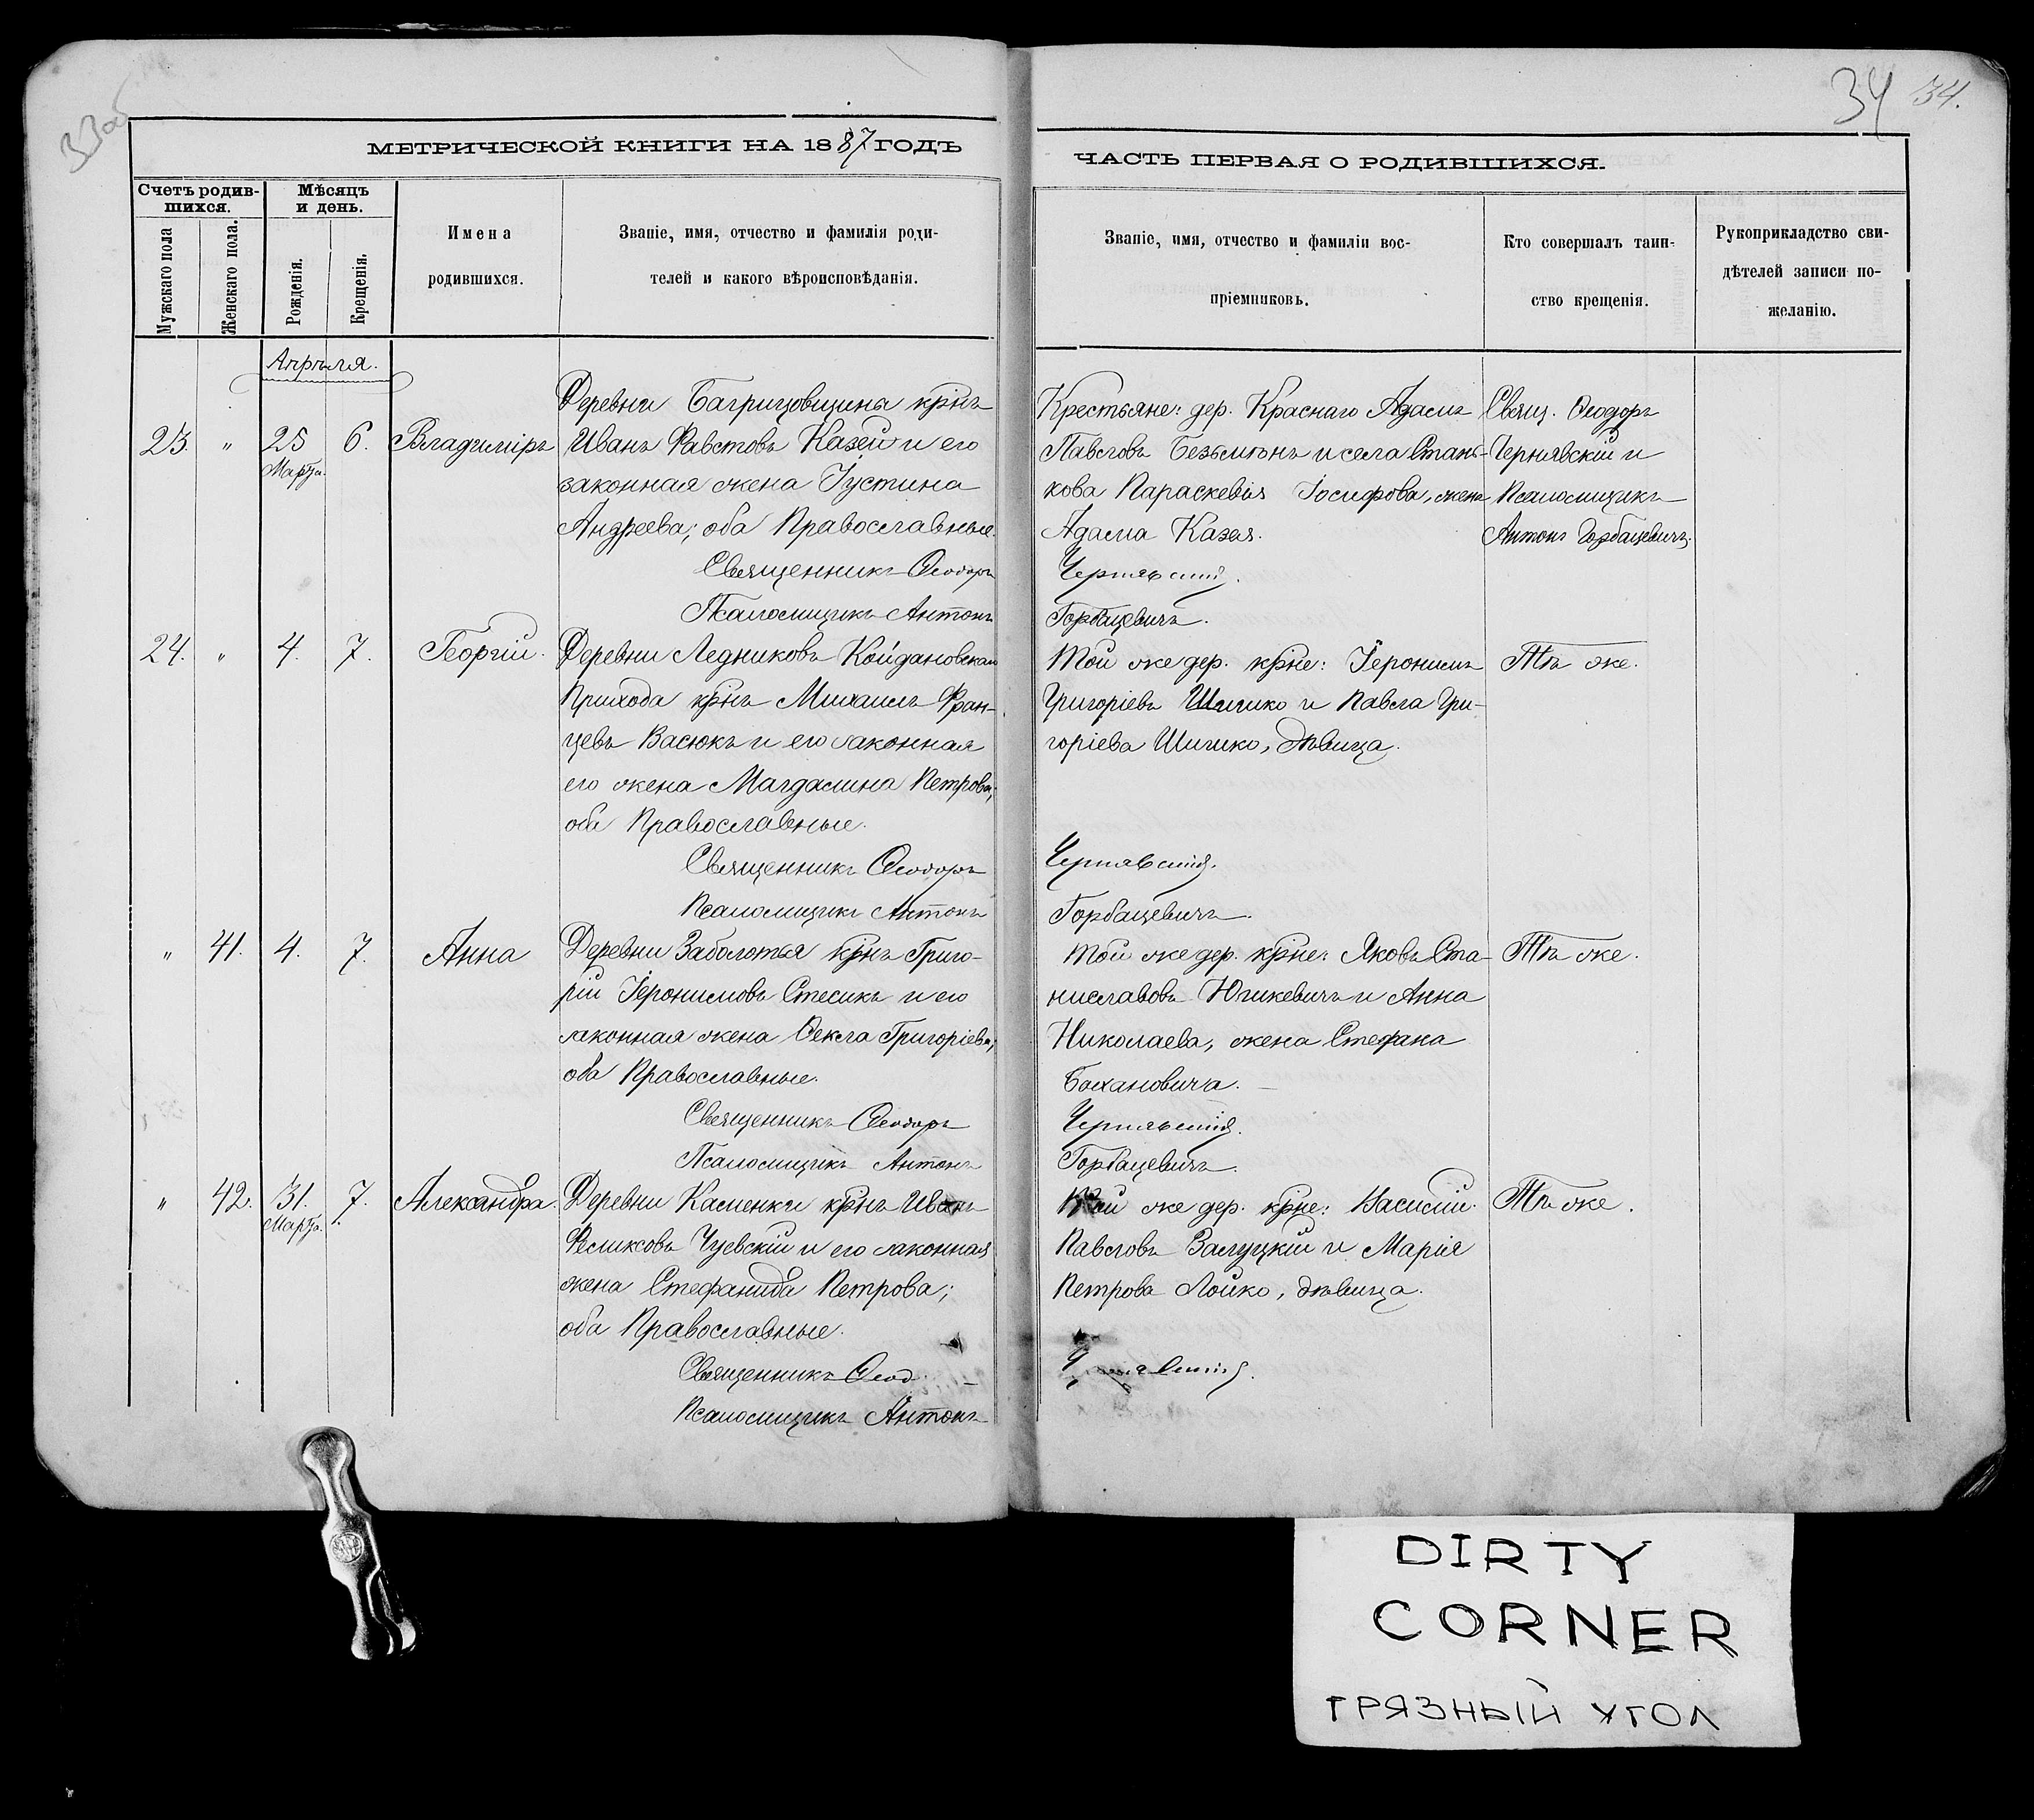 33об
34 34.
МЕТРИЧЕСКОЙ КНИГИ НА 1887 ГОДЪ
ЧАСТЬ ПЕРВАЯ О РОДИВШИХСЯ.
Счетъ родив-
шихся.
Мужскаго пола
Женскаго пола.
Мѣсяцъ
и день.
Рожденія.
Крещенія.
Имена
родившихся.
Званіе, имя, отчество и фамилія роди-
телей и какого вѣроисповѣданія.
Званіе, имя, отчество и фамиліи вос-
пріемниковъ.
Кто совершалъ таин-
ство крещенія.
Рукоприкладство сви-
дѣтелей записи по-
желанію.
Апрѣля.
23. " 25 Марта. 6. Владиміръ
Деревни Багрицовщины крнъ
Иванъ Фавстовъ Казей и его
законная жена Іустина
Андреева; оба Православные.
Священникъ Ѳеодоръ
Псаломщикъ Антонъ
Крестьяне: дер. Краснаго Адамъ
Павловъ Безъмѣнъ и села Стань-
кова Параскевія Іосифова, жена
Адама Казея.
Чернявскій.
Горбацевичъ.
Свящ. Ѳеодоръ
Чернявскій и
Псаломщикъ
Антонъ Горбацевичъ.
24. " 4. 7. Георгій.
Деревни Ледниковъ Койдановскаго
Прихода крнъ Михаилъ Фран-
цевъ Васюкъ и его законная
его жена Магдалина Петрова;
оба Православные.
Священникъ Ѳеодоръ
Псаломщикъ Антонъ
Той же дер. крне: Іеронимъ
Григоріевъ Шишко и Павла Гри-
горіева Шишко, дѣвица.
Чернявскій.
Горбацевичъ.
Тѣ же.
" 41. 4. 7. Анна
Деревни Заболотья крнъ Григо-
рій Іеронимовъ Стесикъ и его
законная жена Ѳекла Григоріева;
оба Православные.
Священникъ Ѳеодоръ
Псаломщикъ Антонъ
Той же дер. крне: Яковъ Ста-
ниславовъ Юшкевичъ и Анна
Николаева, жена Стефана
Бохановича.
Чернявскій.
Горбацевичъ.
Тѣ же.
" 42. 31. Марта. 7. Александра.
Деревни Касменки крнъ Иванъ
Феликсовъ Чуевскій и его законная
жена Стефанида Петрова;
оба Православные.
Священникъ Ѳеод
Псаломщикъ Антонъ
Той же дер. крне: Василій
Павловъ Залуцкій и Марія
Петрова Лойко, дѣвица.
Чернявскій.
Тѣ же.
DIRTY
CORNER
ГРЯЗНЫЙ УГОЛ